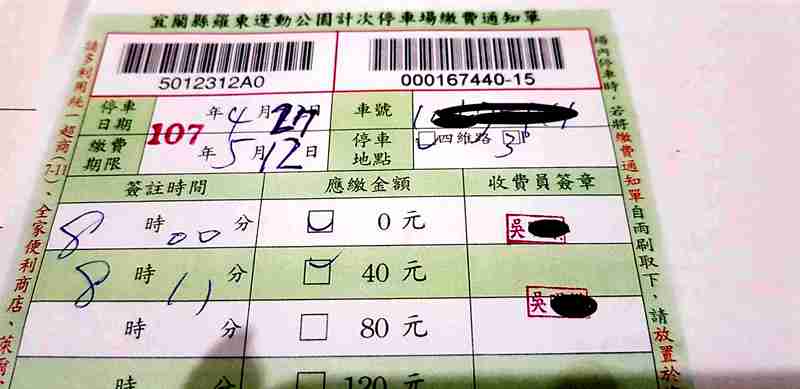 宜蘭縣羅東運動公園計次停車場繳費通知單
5012312A0
000167440-15
停車日期 107 年 4 月 27 日 車號
繳費期限 年 5 月 12 日 停車地點 四維路
簽註時間 應繳金額 收費員簽章
8 時 00 分 0 元 吳
8 時 11 分 40 元 吳
時 分 80 元
時 分 120 元
請多利用統一超商(7-11)、全家便利商店、萊爾
場內停車時,若將繳費通知單自雨刷取下,請放置於